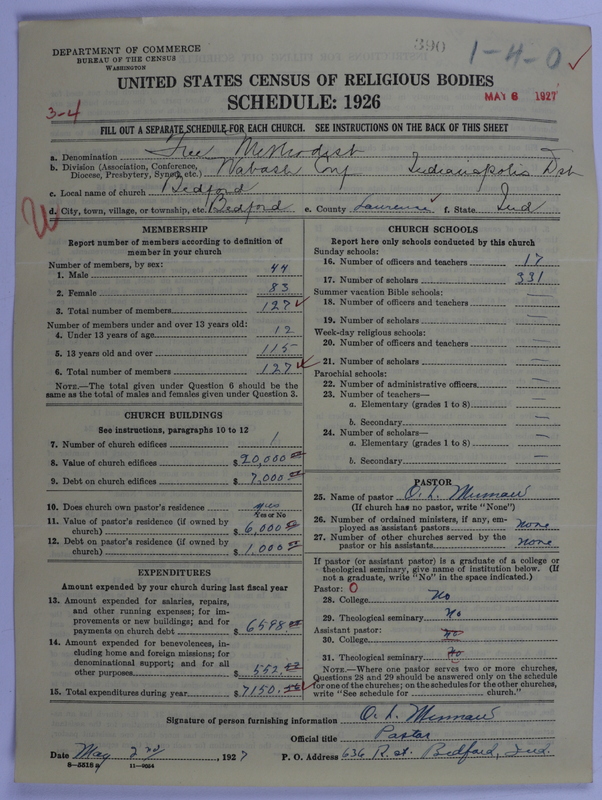 DEPARTMENT OF COMMERCE
BUREAU OF THE CENSUS
WASHINGTON
390
1-4-0
UNITED STATES CENSUS OF RELIGIOUS BODIES
SCHEDULE: 1926
MAY 6 1927
3-4
FILL OUT A SEPARATE SCHEDULE FOR EACH CHURCH. SEE INSTRUCTIONS ON THE BACK OF THIS SHEET
a. Denomination Free Methodist
b. Division (Association, Conference, Diocese, Presbytery, Synod, etc.) Wabash Conf Indianapolis Dst
c. Local name of church Bedford
d. City, town, village, or township, etc. Bedford e. County Lawrence f. State Ind
W
MEMBERSHIP
Report number of members according to definition of
member in your church
Number of members, by sex:
1. Male 44
2. Female 83
3. Total number of members 127
Number of members under and over 13 years old:
4. Under 13 years of age 12
5. 13 years old and over 115
6. Total number of members 127
NOTE.—The total given under Question 6 should be
same as the total of males and females given under Question 3.
CHURCH BUILDINGS
See instructions, paragraphs 10 to 12
7. Number of church edifices 1
8. Value of church edifices $20,000 00
9. Debt on church edifices $7,000 00
10. Does church own pastor's residence yes
Yes or No
11. Value of pastor's residence (if owned by
church) $6,000 00
12. Debt on pastor's residence (if owned by
church) $1,000 00
EXPENDITURES
Amount expended by your church during last fiscal year
13. Amount expended for salaries, repairs,
and other running expenses; for im-
provements or new buildings; and for
payments on church debt $6598
14. Amount expended for benevolences, in-
cluding home and foreign missions; for
denominational support; and for all
other purposes $552
15. Total expenditures during year $7150
CHURCH SCHOOLS
Report here only schools conducted by this church
Sunday schools:
16. Number of officers and teachers 17
17. Number of scholars 331
Summer vacation Bible schools:
18. Number of officers and teachers —
19. Number of scholars —
Week-day religious schools:
20. Number of officers and teachers —
21. Number of scholars —
Parochial schools:
22. Number of administrative officers —
23. Number of teachers—
a. Elementary (grades 1 to 8) —
b. Secondary —
24. Number of scholars—
a. Elementary (grades 1 to 8) —
b. Secondary —
PASTOR
25. Name of pastor O. L.
(If church has no pastor, write "None")
26. Number of ordained ministers, if any, em-
ployed as assistant pastors none
27. Number of other churches served by the
pastor or his assistants none
If pastor (or assistant pastor) is a graduate of a college or
theological seminary, give name of institution below. (If
not a graduate, write "No" in the space indicated.)
Pastor: O
28. College no
29. Theological seminary no
Assistant pastor:
30. College no
31. Theological seminary no
NOTE.—Where one pastor serves two or more churches,
Questions 28 and 29 should be answered only on the schedule
for one of the churches; on the schedules for the other churches,
write "See schedule for church."
Signature of person furnishing information O. L.
Official title Pastor
Date May 2nd, 1927 P. O. Address 636 R. st. Bedford, Ind.
8-5518 a 11-9024